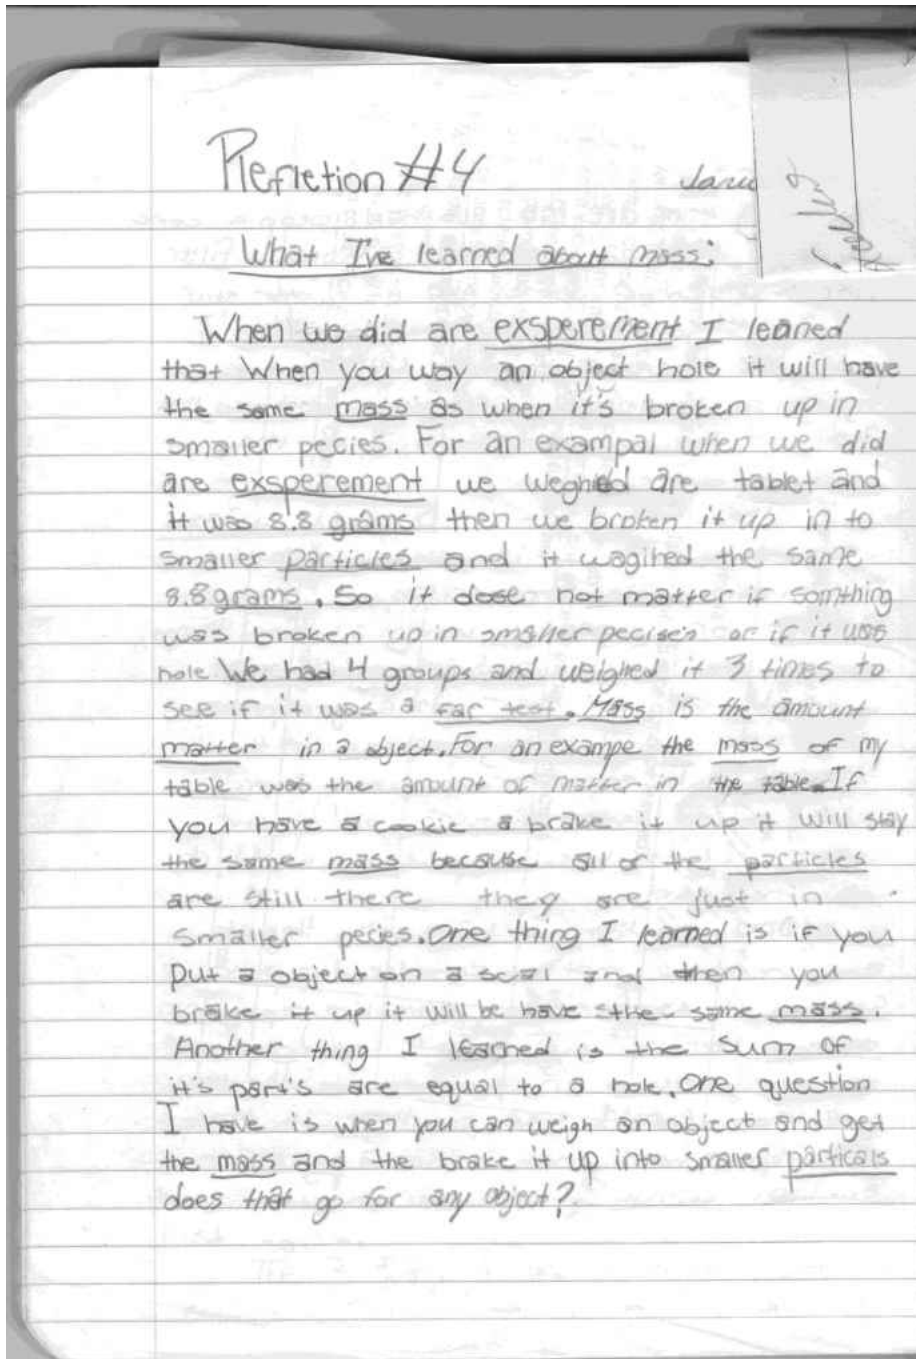 Refletion #4
Janu
What I've learned about mass:
When we did are exsperement I leaned
that When you way an object hole it will have
the same mass as when it's broken up in
smaller pecies. For an exampal when we did
are exsperement we weghed are tablet and
it was 8.8 grams then we broken it up in to
smaller particles and it wagihed the same
8.8 grams. So it dose not matter if somthing
was broken up in smaller pecise's or if it was
hole We had 4 groups and weighed it 3 times to
see if it was a far test. Mass is the amount
matter in a object. For an exampe the mass of my
table was the amount of matter in the table. If
you have a cookie a brake it up it will stay
the same mass because all of the particles
are still there they are just in
smaller pecies. One thing I learned is if you
put a object on a scal and then you
brake it up it will be have the same mass.
Another thing I learned is the sum of
it's part's are equal to a hole. One question
I have is when you can weigh an object and get
the mass and the brake it up into smaller particals
does that go for any object?